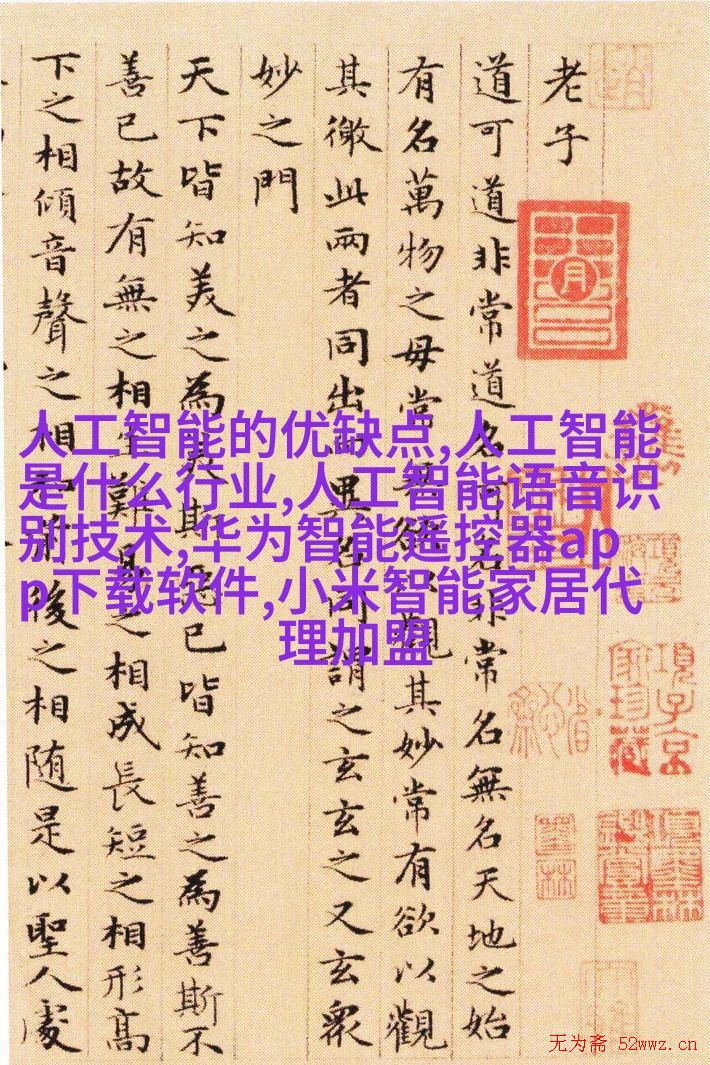 老子
道可道非常道名可名非常名無名天地之始
有名萬物之母常無欲以觀其妙常有欲以觀
其徼此兩者同出而異名同謂之玄玄之又玄衆
妙之門
天下皆知美之為美斯惡已皆知善之為善斯不
善已故有無之相生難易之相成長短之相形高
下之相傾音聲之相和前後之相随是以聖人處
人工智能的优缺点,人工智能
是什么行业,人工智能语音识
别技术,华为智能遥控器ap
p下载软件,小米智能家居代
理加盟
月
項子京
家珍藏
无为斋 52wwz.cn